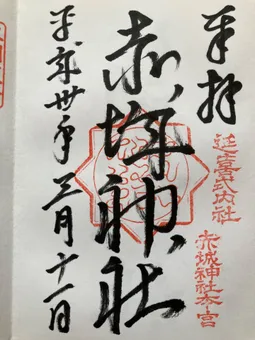 奉拝
延喜式内社
赤城神社本宮
赤城神社
平成卅一年三月十一日